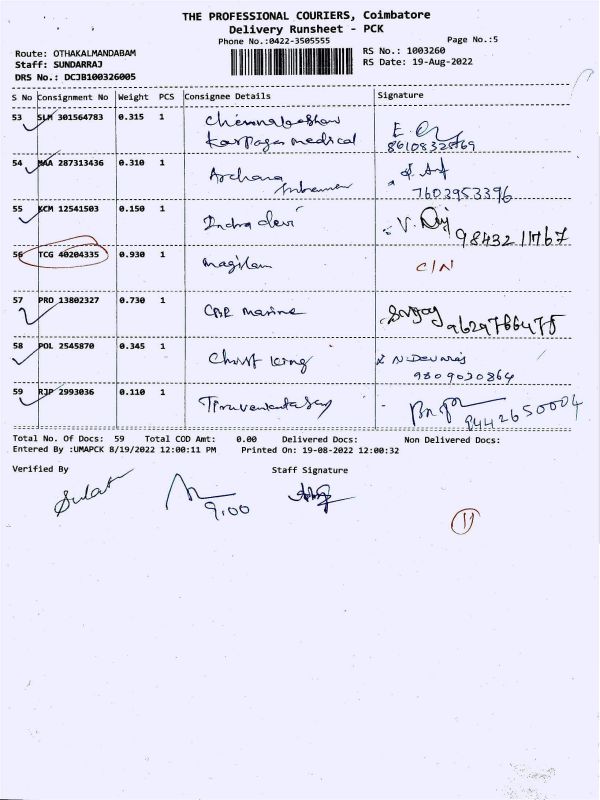 THE PROFESSIONAL COURIERS, Coimbatore
Delivery Runsheet - PCK
Phone No.:0422-3505555
Page No.:5
Route: OTHAKALMANDABAM
RS No.: 1003260
Staff: SUNDARRAJ
RS Date: 19-Aug-2022
DRS No.: DCJB100326005
S No Consignment No Weight PCS Consignee Details Signature
53 SLM 301564783 0.315 1
Karpaga medical
54 MAA 287313436 0.310 1 Archana
7603953396
55 KCM 12541503 0.150 1 Indra devi V.
9843211767
56 TCG 40204335 0.930 1 magilam C/N
57 PRO 13802327 0.730 1 CBE marine Sanjay
9629766475
58 POL 2545870 0.345 1 Christ king N. Devaraj
9809030864
59 RJP 2993036 0.110 1
9442650004
Total No. Of Docs: 59 Total COD Amt: 0.00 Delivered Docs: Non Delivered Docs:
Entered By :UMAPCK 8/19/2022 12:00:11 PM Printed On: 19-08-2022 12:00:32
Verified By Staff Signature
9.00
11